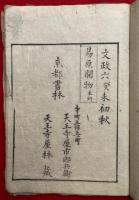 文政六癸未初秋
易原開物 未刻
京都書林
寺町五條上町
天王寺屋市郎兵衛
天王寺屋林